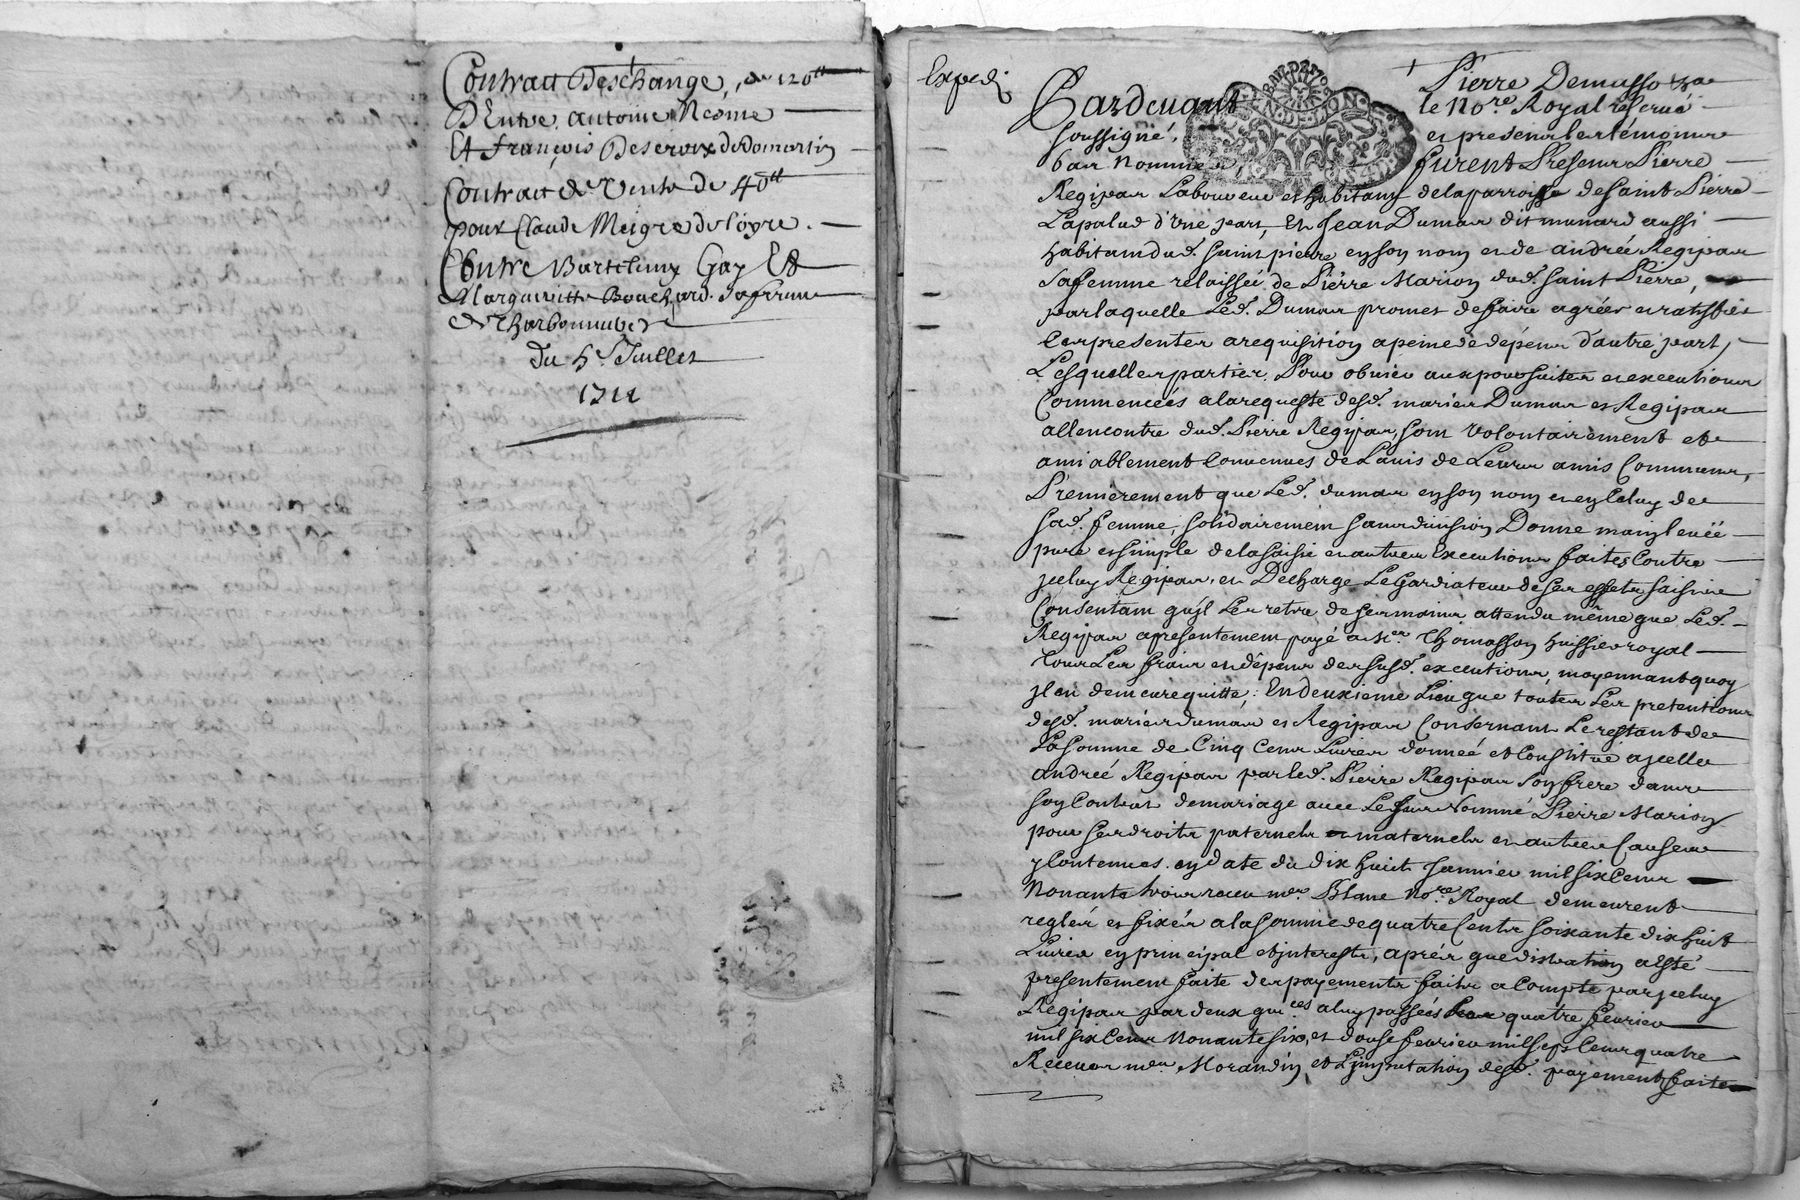 Contract Deschange, de 120ᵗᵗ
D'Entre antoine Neōme
Et françois Descroix de Domartin
Contract de Vente de 40ᵗᵗ
pour Claude Meigre de loyre.
Contre Bartelemy Gay Et
Margueritte Bouchard sa femme
de Charbonnieres
Du 5ᵉ Juillet
1711
Exped.
Pardevant Pierre Demasso
le No.ʳᵉ Royal reservé
soussigné, et presens les témoins
bas Nommés furent Presens Pierre
Regipas Laboureur et habitant de la parroisse de Saint Pierre
Lapalud d'Une part, Et Jean Dumas dit munard aussi
habitant dud. saint pierre en son nom et de andrée Regipas
sa femme relaissée de Pierre Marion dud. saint Pierre,
par laquelle Led. Dumas promet de faire agréer et ratiffier
les presentes a requisition a peine de dépens d'autre part,
Lesquelles parties. Pour obvier aux poursuites et executions
Commenceés a la requeste desd. mariés Dumas et Regipas
allencontre dud. Pierre Regipas, sont volontairement et
amiablement Convenues de L'avis de Leurs amis Communs,
Premierement que Led. dumas en son nom et en celuy de
sad. femme, solidairement sans division Donne mainlevée
pure et simple de la saisie et autres Executions faites Contre
iceluy Regipas, et Decharge Le Gardiateur de ses effets saisis
Consentant qu'jl Les retire de ses mains attendu même que Led.
Regipas a presentement payé a Mᵉʳ Thomasson huissier royal
Tous Les frais et dépens des susd. executions, moyennant quoy
jl en demeure quitte; En deuxieme Lieu que toutes Les pretentions
desd. mariés dumas et Regipas Consernant Le restant de
La somme de Cinq Cens Livres donneé et Constituë a jcelle
andreé Regipas par led. Pierre Regipas son frere dans
son Contrat de mariage avec Le feu Nommé Pierre Marion
pour ses droits paternels et maternels et autres Causes
y Contenues. en date du dix huit Janvier mil six Cens
Nonante trois receu mᵉ Blanc No.ʳᵉ Royal demeurent
reglés et fixés a la somme de quatre Cents soixante dix huit
Livres en principal et jnterests, aprés que distration a esté
presentement faite des payements faits a Compte par jceluy
Regipas par deux qui.ᶜᵉˢ a luy passeés Les quatre fevrier
mil six Cens Nonante six, et douse fevrier mil sept Cens quatre
Receues mᵉ Morandin et L'jmputation desd. payements faite